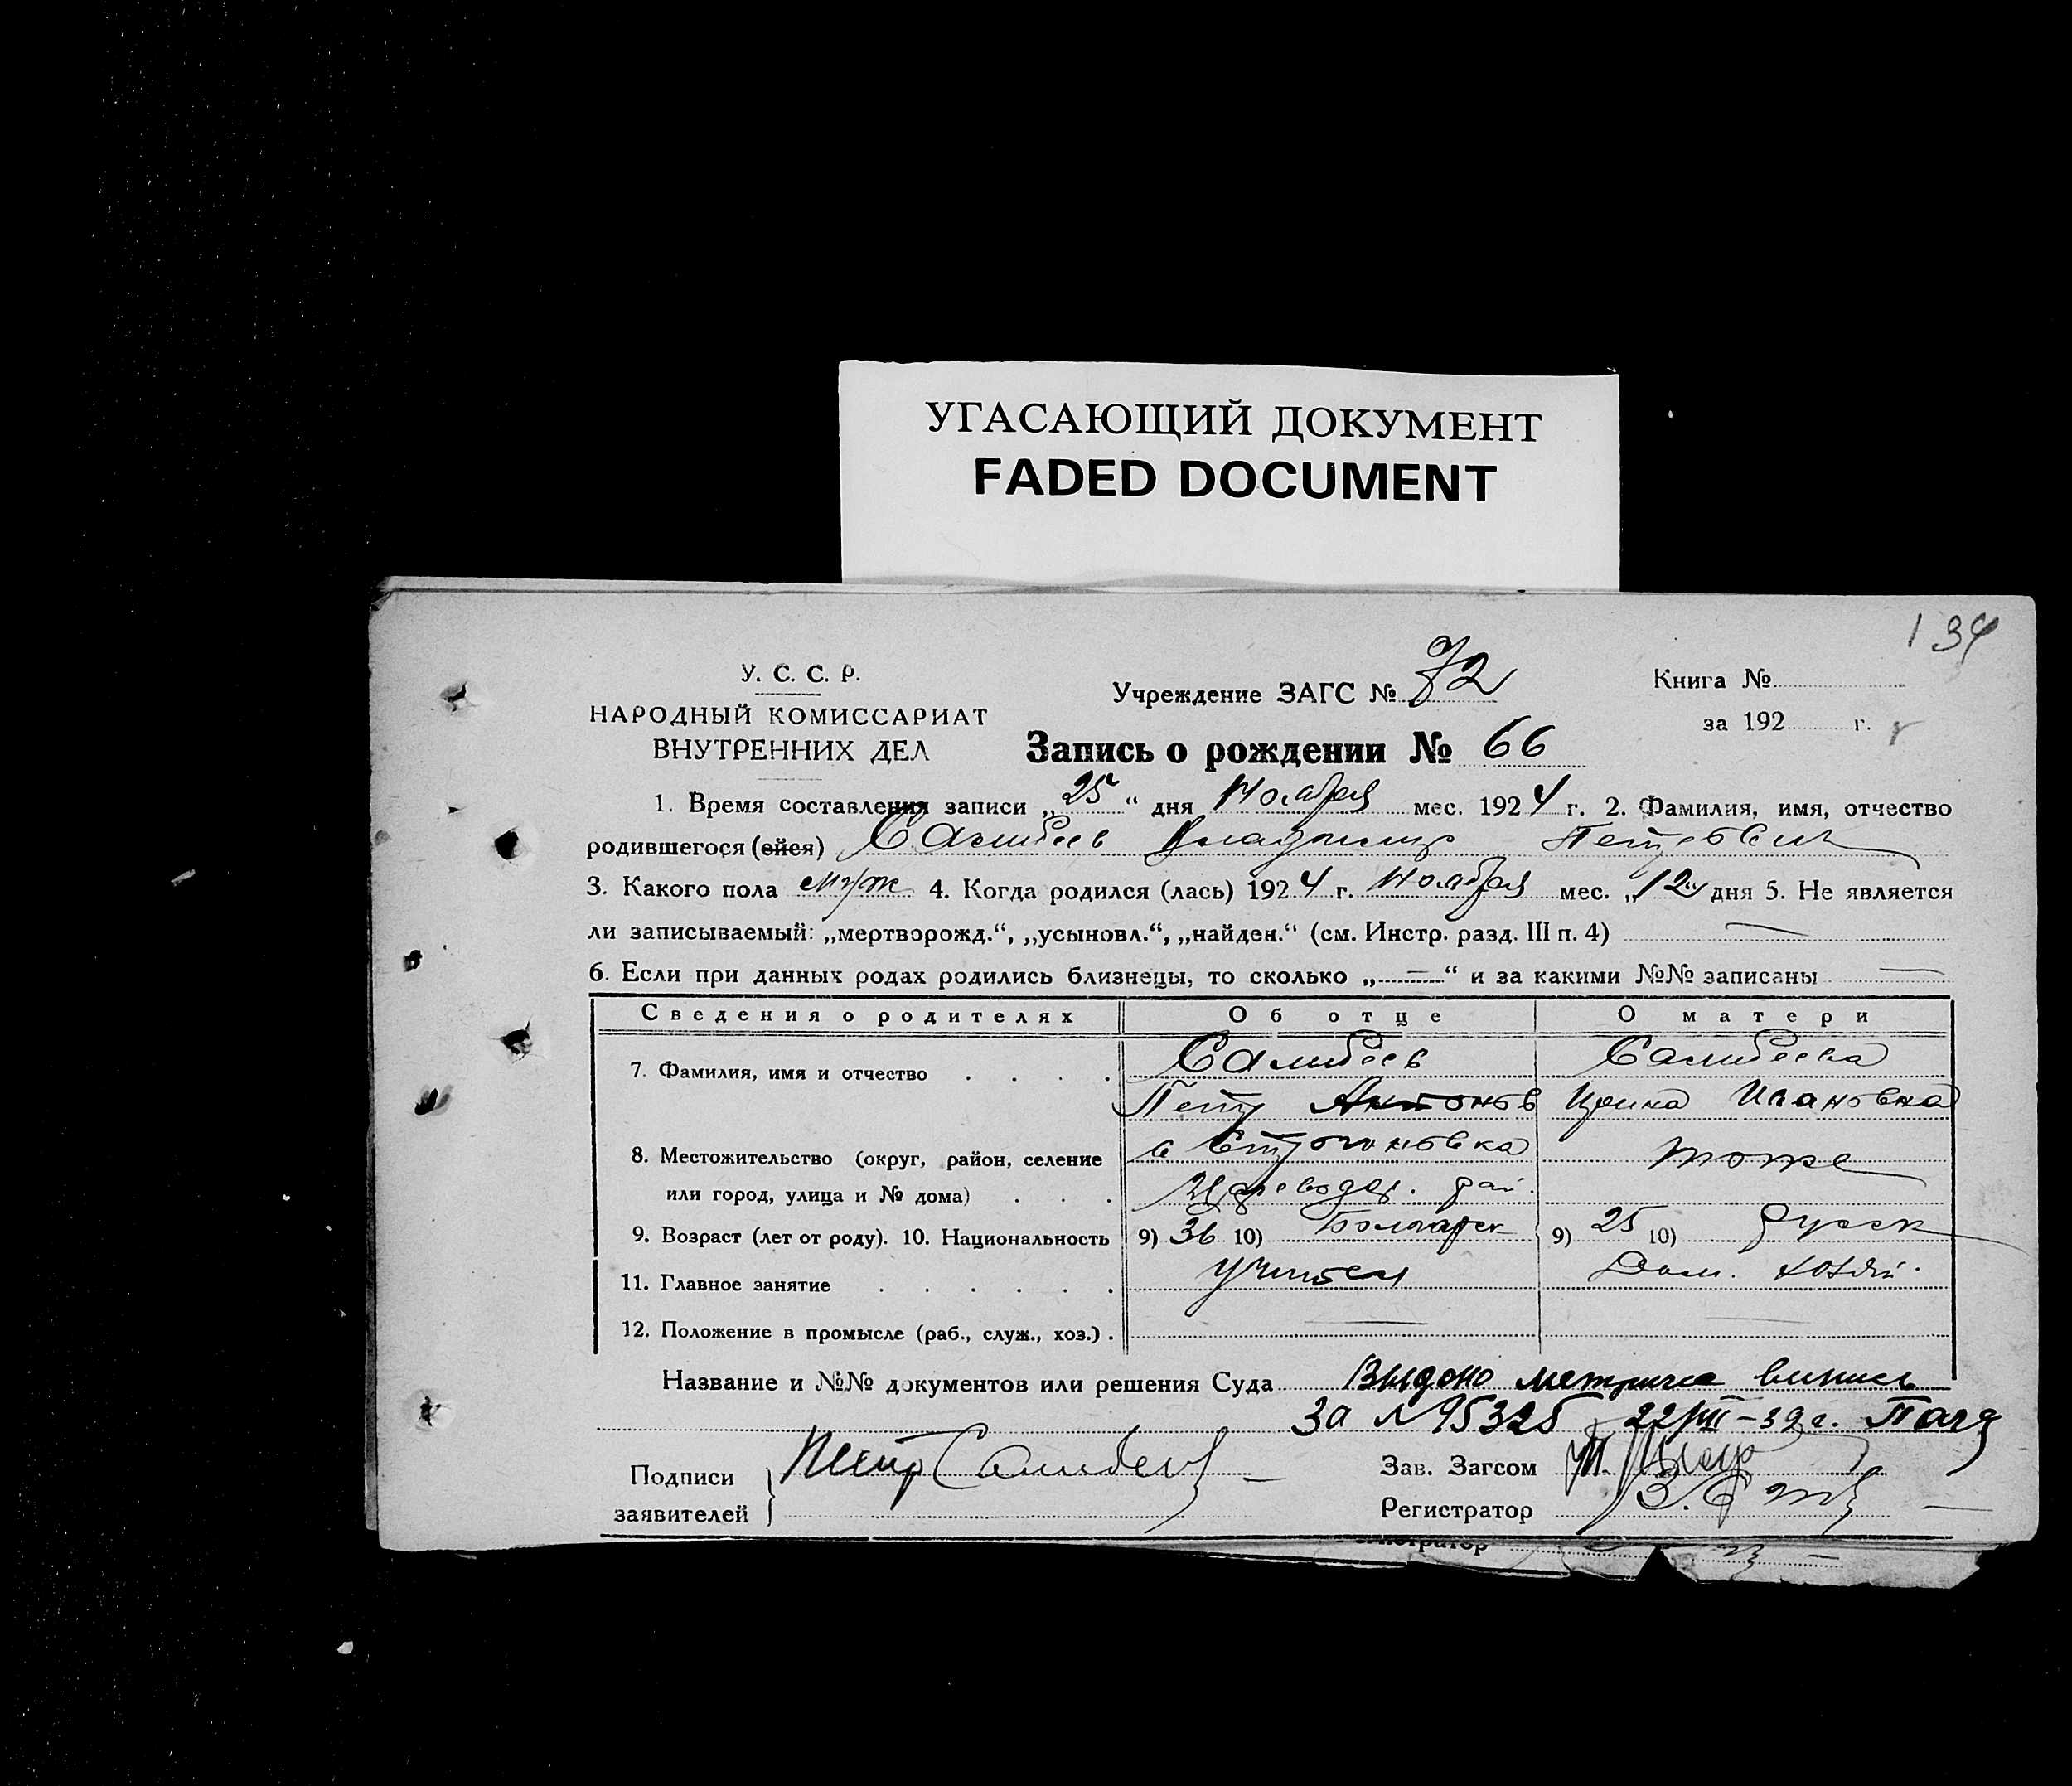 УГАСАЮЩИЙ ДОКУМЕНТ
FADED DOCUMENT
134
У. С. С. Р.
НАРОДНЫЙ КОМИССАРИАТ
ВНУТРЕННИХ ДЕЛ
Учреждение ЗАГС № 72
Книга №
за 192 г.
Запись о рождении № 66
1. Время составления записи „25“ дня Ноября мес. 1924 г. 2. Фамилия, имя, отчество
родившегося (ейся) Салибеев Владимир Петрович
3. Какого пола муж 4. Когда родился (лась) 1924 г. Ноября мес. „12“ дня 5. Не является
ли записываемый: „мертворожд.“, „усыновл.“, „найден.“ (см. Инстр. разд. III п. 4) —
6. Если при данных родах родились близнецы, то сколько „—“ и за какими №№ записаны —
Сведения о родителях Об отце О матери
7. Фамилия, имя и отчество Салибеев Салибеева
Петр Антонов Ирина Ивановна
8. Местожительство (округ, район, селение с Строгоновка тоже
или город, улица и № дома) рай.
9. Возраст (лет от роду). 10. Национальность 9) 36 10) Болгарск 9) 25 10) русск
11. Главное занятие учитель Дом. хозяй.
12. Положение в промысле (раб., служ., хоз.) — —
Название и №№ документов или решения Суда Выдано метричес випись
За № 95325 22/III-39г.
Подписи
заявителей
Петр Салибеев
Зав. Загсом
Регистратор